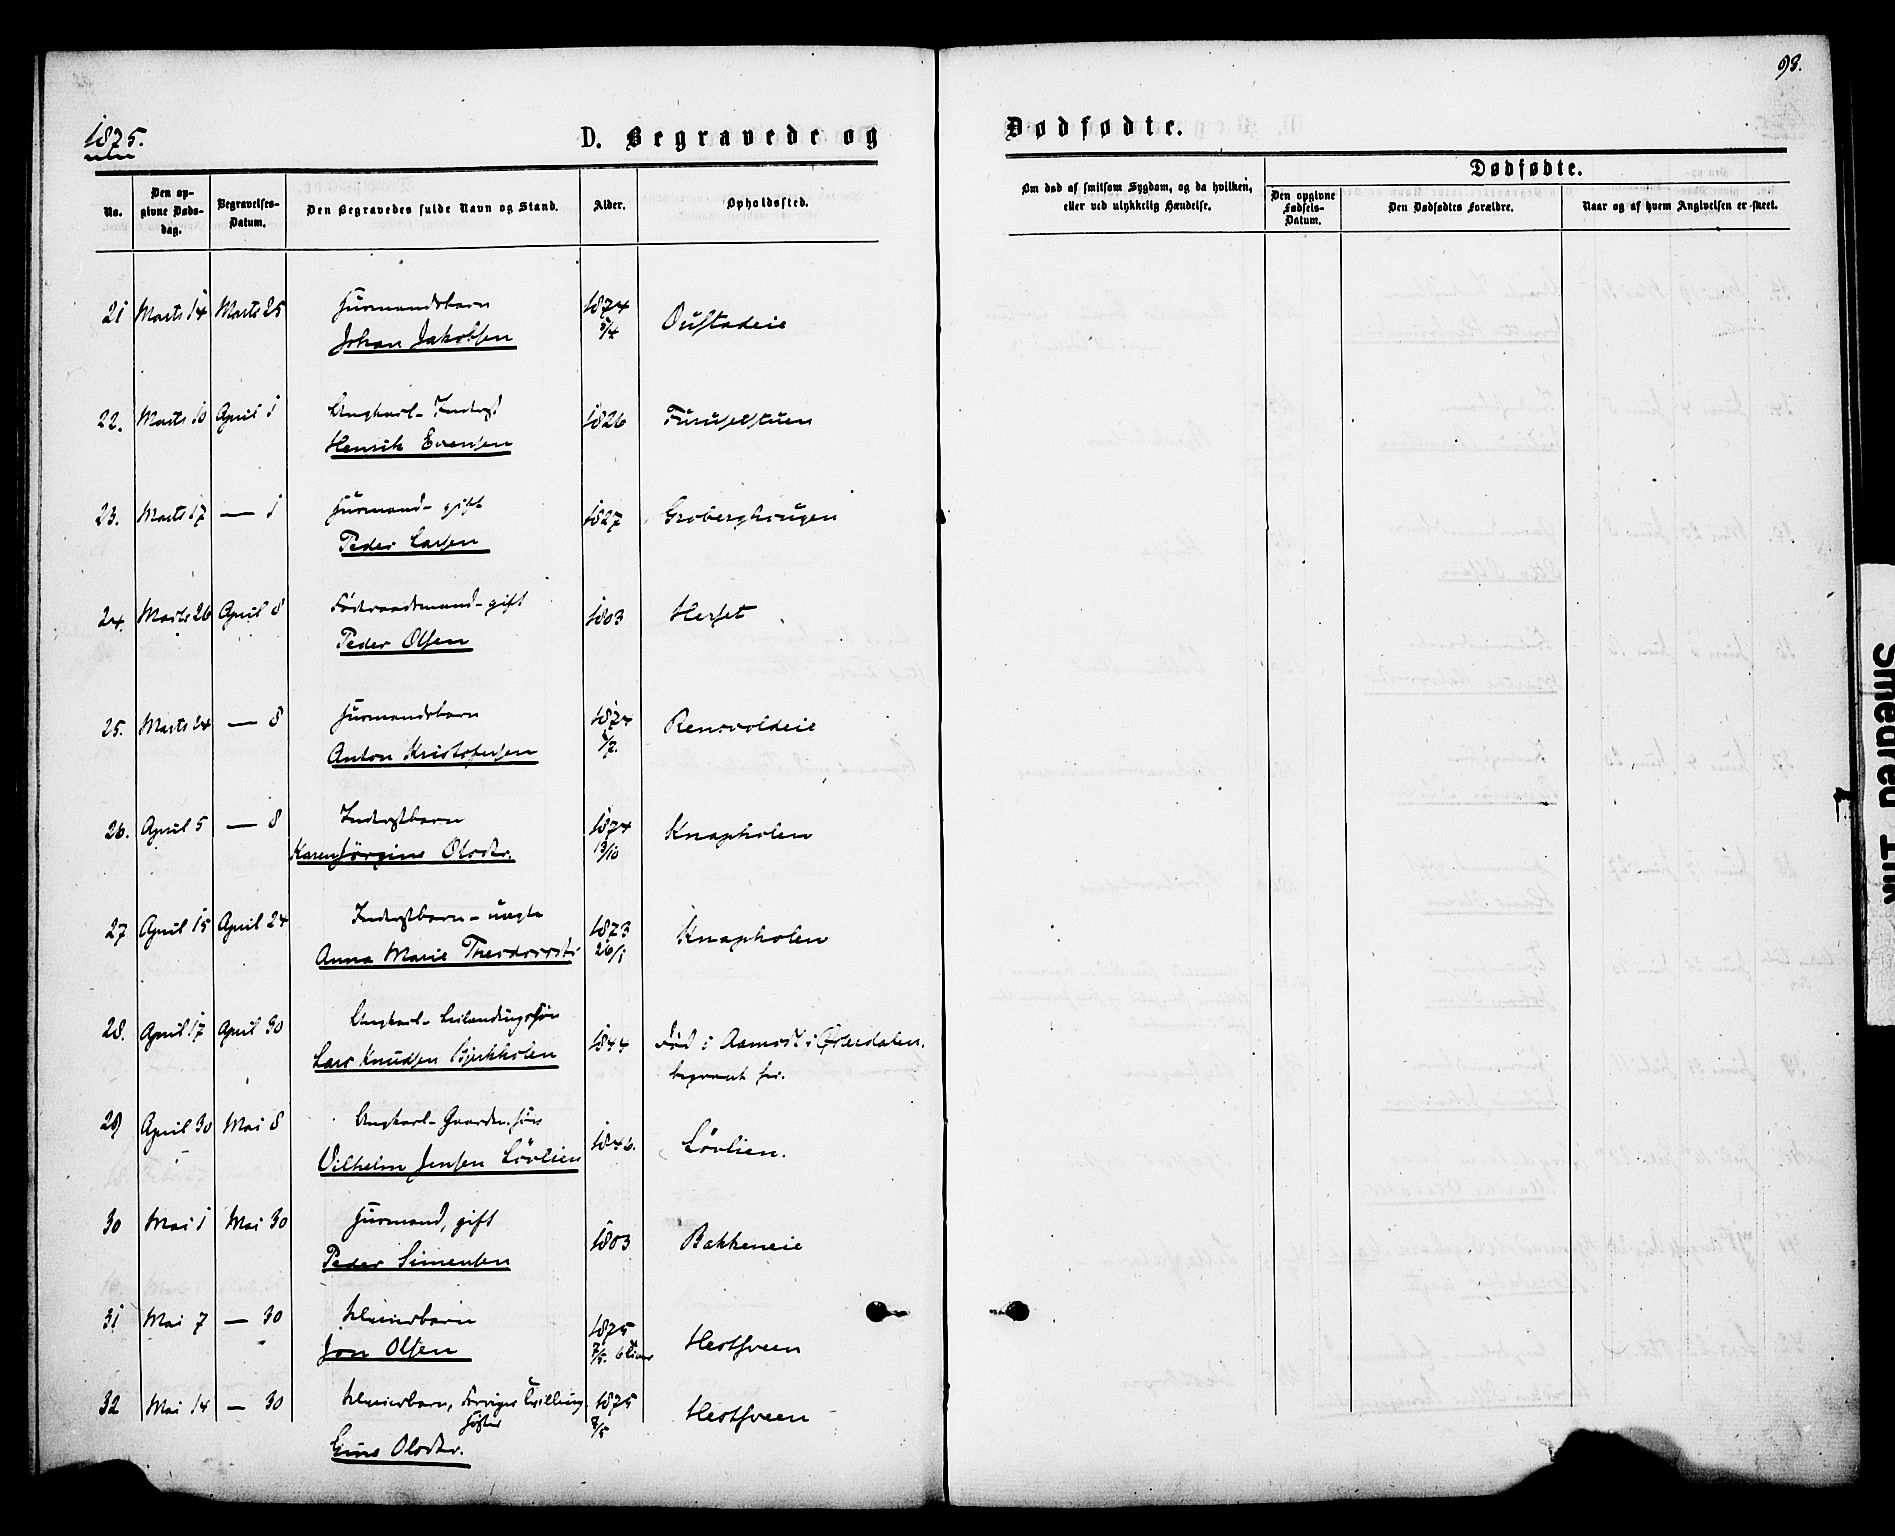 98.
1875.
D. Begravede og
Dødfødte.
No.
Den op-
givne Døds-
dag.
Begravelses-
Datum.
Den Begravedes fulde Navn og Stand.
Alder.
Opholdssted.
Om død af smitsom Sygdom, og da hvilken,
eller ved ulykkelig Hændelse.
Dødfødte.
Den opgivne
Fødsels-
Datum.
Den Dødfødtes Forældre.
Naar og af hvem Angivelsen er skeet.
21 Marts 14 Marts 25 Husmandsbarn 1874
Johan Jakobsen
22. Marts 10 April 1 Ungkarl - Inderst 1826 Furusetstuen
Henrik Evensen
23. Marts 17 — 1 Husmand - gift 1827 Groberghougen
Peder Larsen
24. Marts 26 April 8 Føderaadsmand - gift 1803 Herset
Peder Olsen
25. Marts 24 — 8 Husmandsbarn 1874 Rensvoldeie
Anton Kristofersen
26. April 5 — 8 Inderstbarn 1874 Knapholen
Karen Jørgine Olsdtr. 13/10
27 April 15 April 24 Inderstbarn - uægte 1873 Knapholen
Anna Marie 26/1
28. April 17 April 30 Ungkarl - Leilendingssøn 1844 Død i Aamodt i Østerdalen.
Lars Knudsen Bjerkholen begravet her.
29 April 30 Mai 8 Ungkarl - Gaardm. søn 1846. Løvlien.
Vilhelm Jensen Løvlien
30 Mai 1 Mai 30 Husmand, gift 1803 Bakkeneie
Peder Simensen
31 Mai 7 — 30 1875 Hestsveen
Jon Olsen 7/5.
32 Mai 14 — 30 Forriges Tvilling 1875 Hestsveen
Søster 7/5
Olsdtr.
Smeared Ink